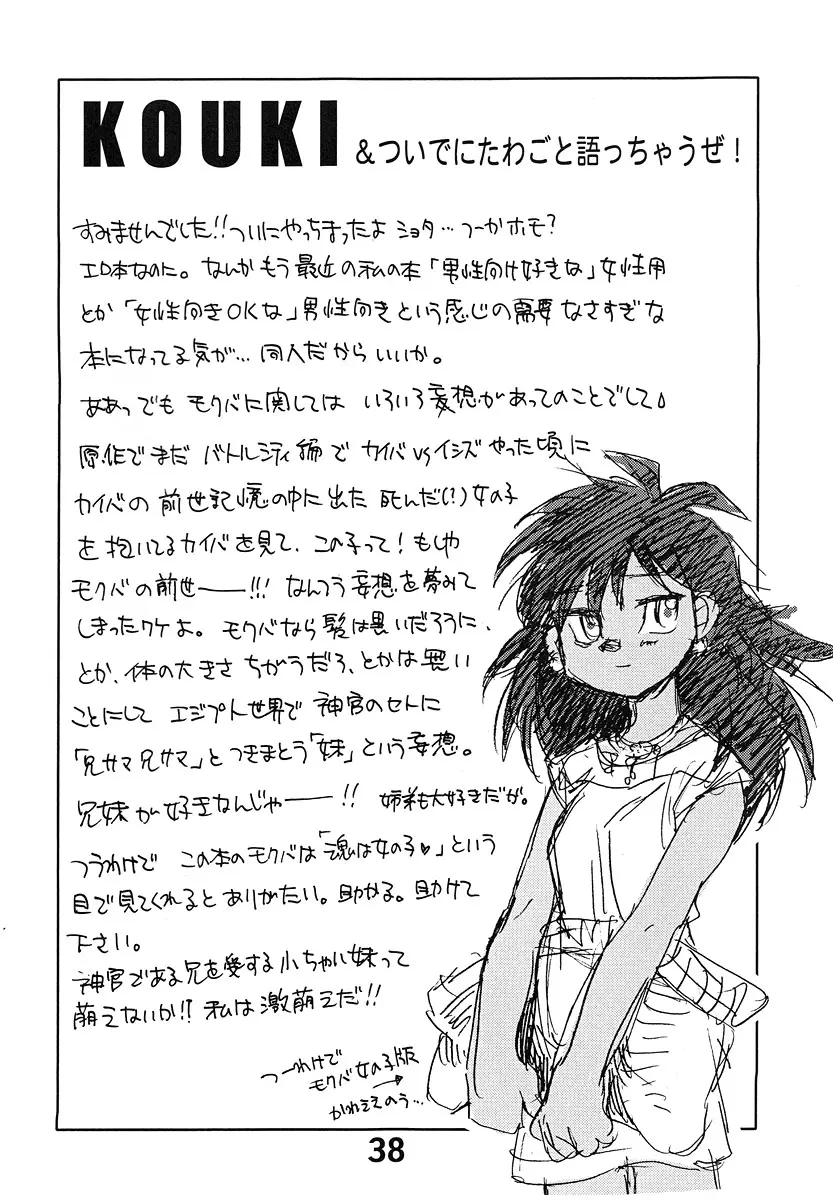 KOUKI &ついでにたわごと語っちゃうぜ!
すみませんでした!!ついにやっちまったよ ショタ…つーかホモ?
エロ本なのに。なんかもう最近の私の本「男性向け好きな」女性用
とか「女性向きOKな」男性向きという感じの需要なさすぎな
本になってる気が…同人だからいいか。
ああっでも モクバに関しては いろいろ妄想があってのことでして
原作でまだ バトルシティ編で カイバvsイシズ やった頃に
カイバの前世記憶の中に出た 死んだ(!)女の子
を抱いてるカイバを見て、この子って!もしや
モクバの前世――!!! なんつう妄想を夢みて
しまったワケよ。モクバなら髪は黒いだろうに、
とか、体の大きさちがうだろ、とかは悪い
ことにして エジプト世界で 神官のセトに
「兄サマ兄サマ」とつきまとう「妹」という妄想。
兄妹が好きなんじゃ――!! 姉弟も大好きだが。
つうわけで この本のモクバは「魂は女の子♥」という
目で見てくれるとありがたい。助かる。助けて
下さい。
神官である兄を愛する小ちゃい妹って
萌えないか!? 私は激萌えだ!!
つーわけで
モクバ女の子版
→
かわええのう…
38